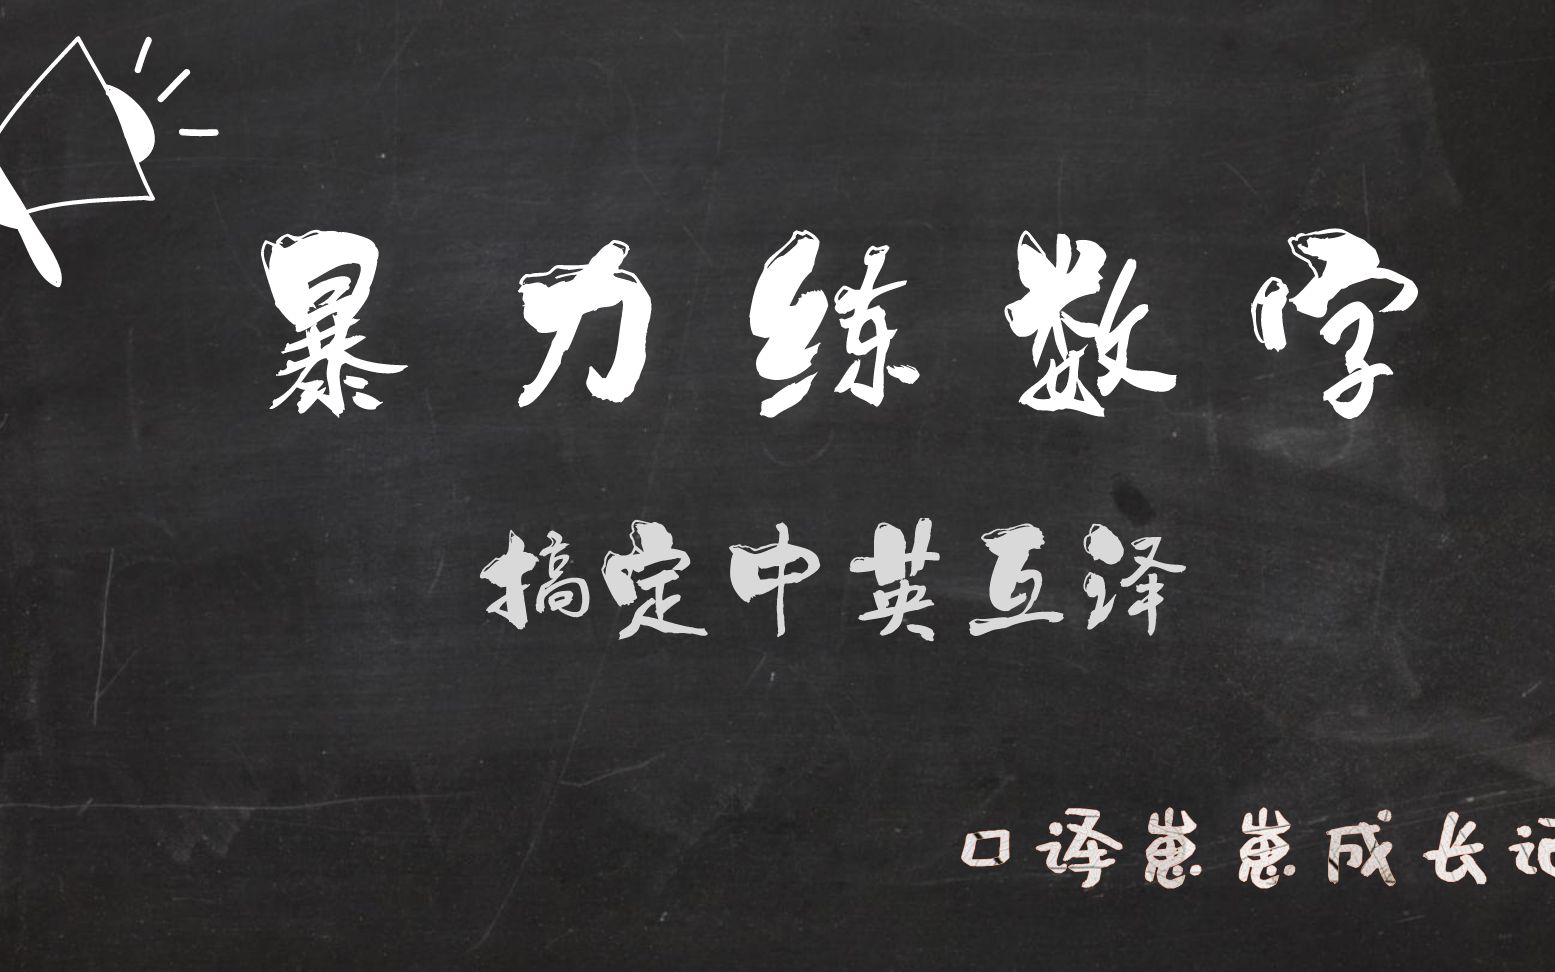 暴力练数字
搞定中英互译
口译崽崽成长记